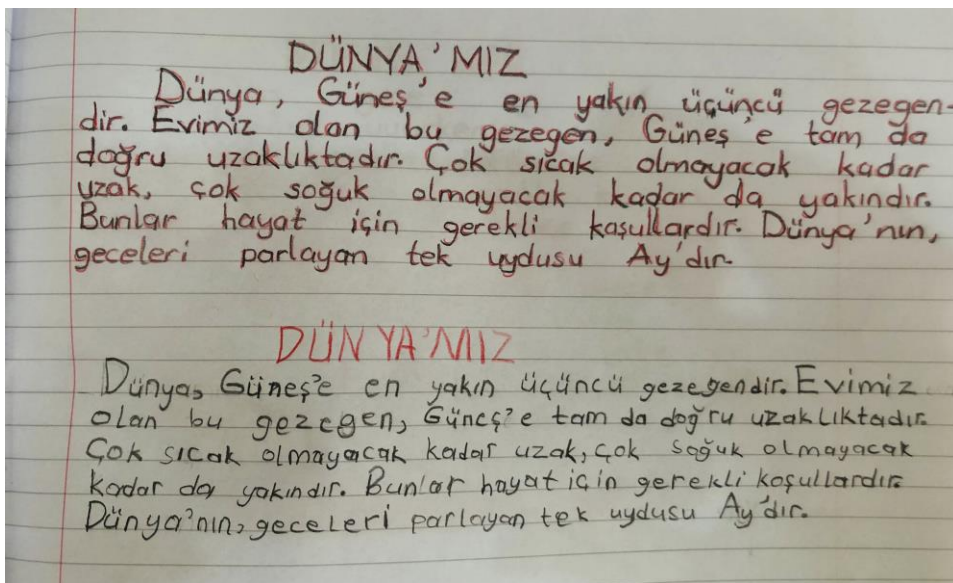 DÜNYA'MIZ
Dünya, Güneş'e en yakın üçüncü gezegen-
dir. Evimiz olan bu gezegen, Güneş'e tam da
doğru uzaklıktadır. Çok sıcak olmayacak kadar
uzak, çok soğuk olmayacak kadar da yakındır.
Bunlar hayat için gerekli koşullardır. Dünya'nın,
geceleri parlayan tek uydusu Ay'dır.
DÜNYA'MIZ
Dünya, Güneş'e en yakın üçüncü gezegendir. Evimiz
olan bu gezegen, Güneş'e tam da doğru uzaklıktadır.
Çok sıcak olmayacak kadar uzak, çok soğuk olmayacak
kadar da yakındır. Bunlar hayat için gerekli koşullardır.
Dünya'nın, geceleri parlayan tek uydusu Ay'dır.